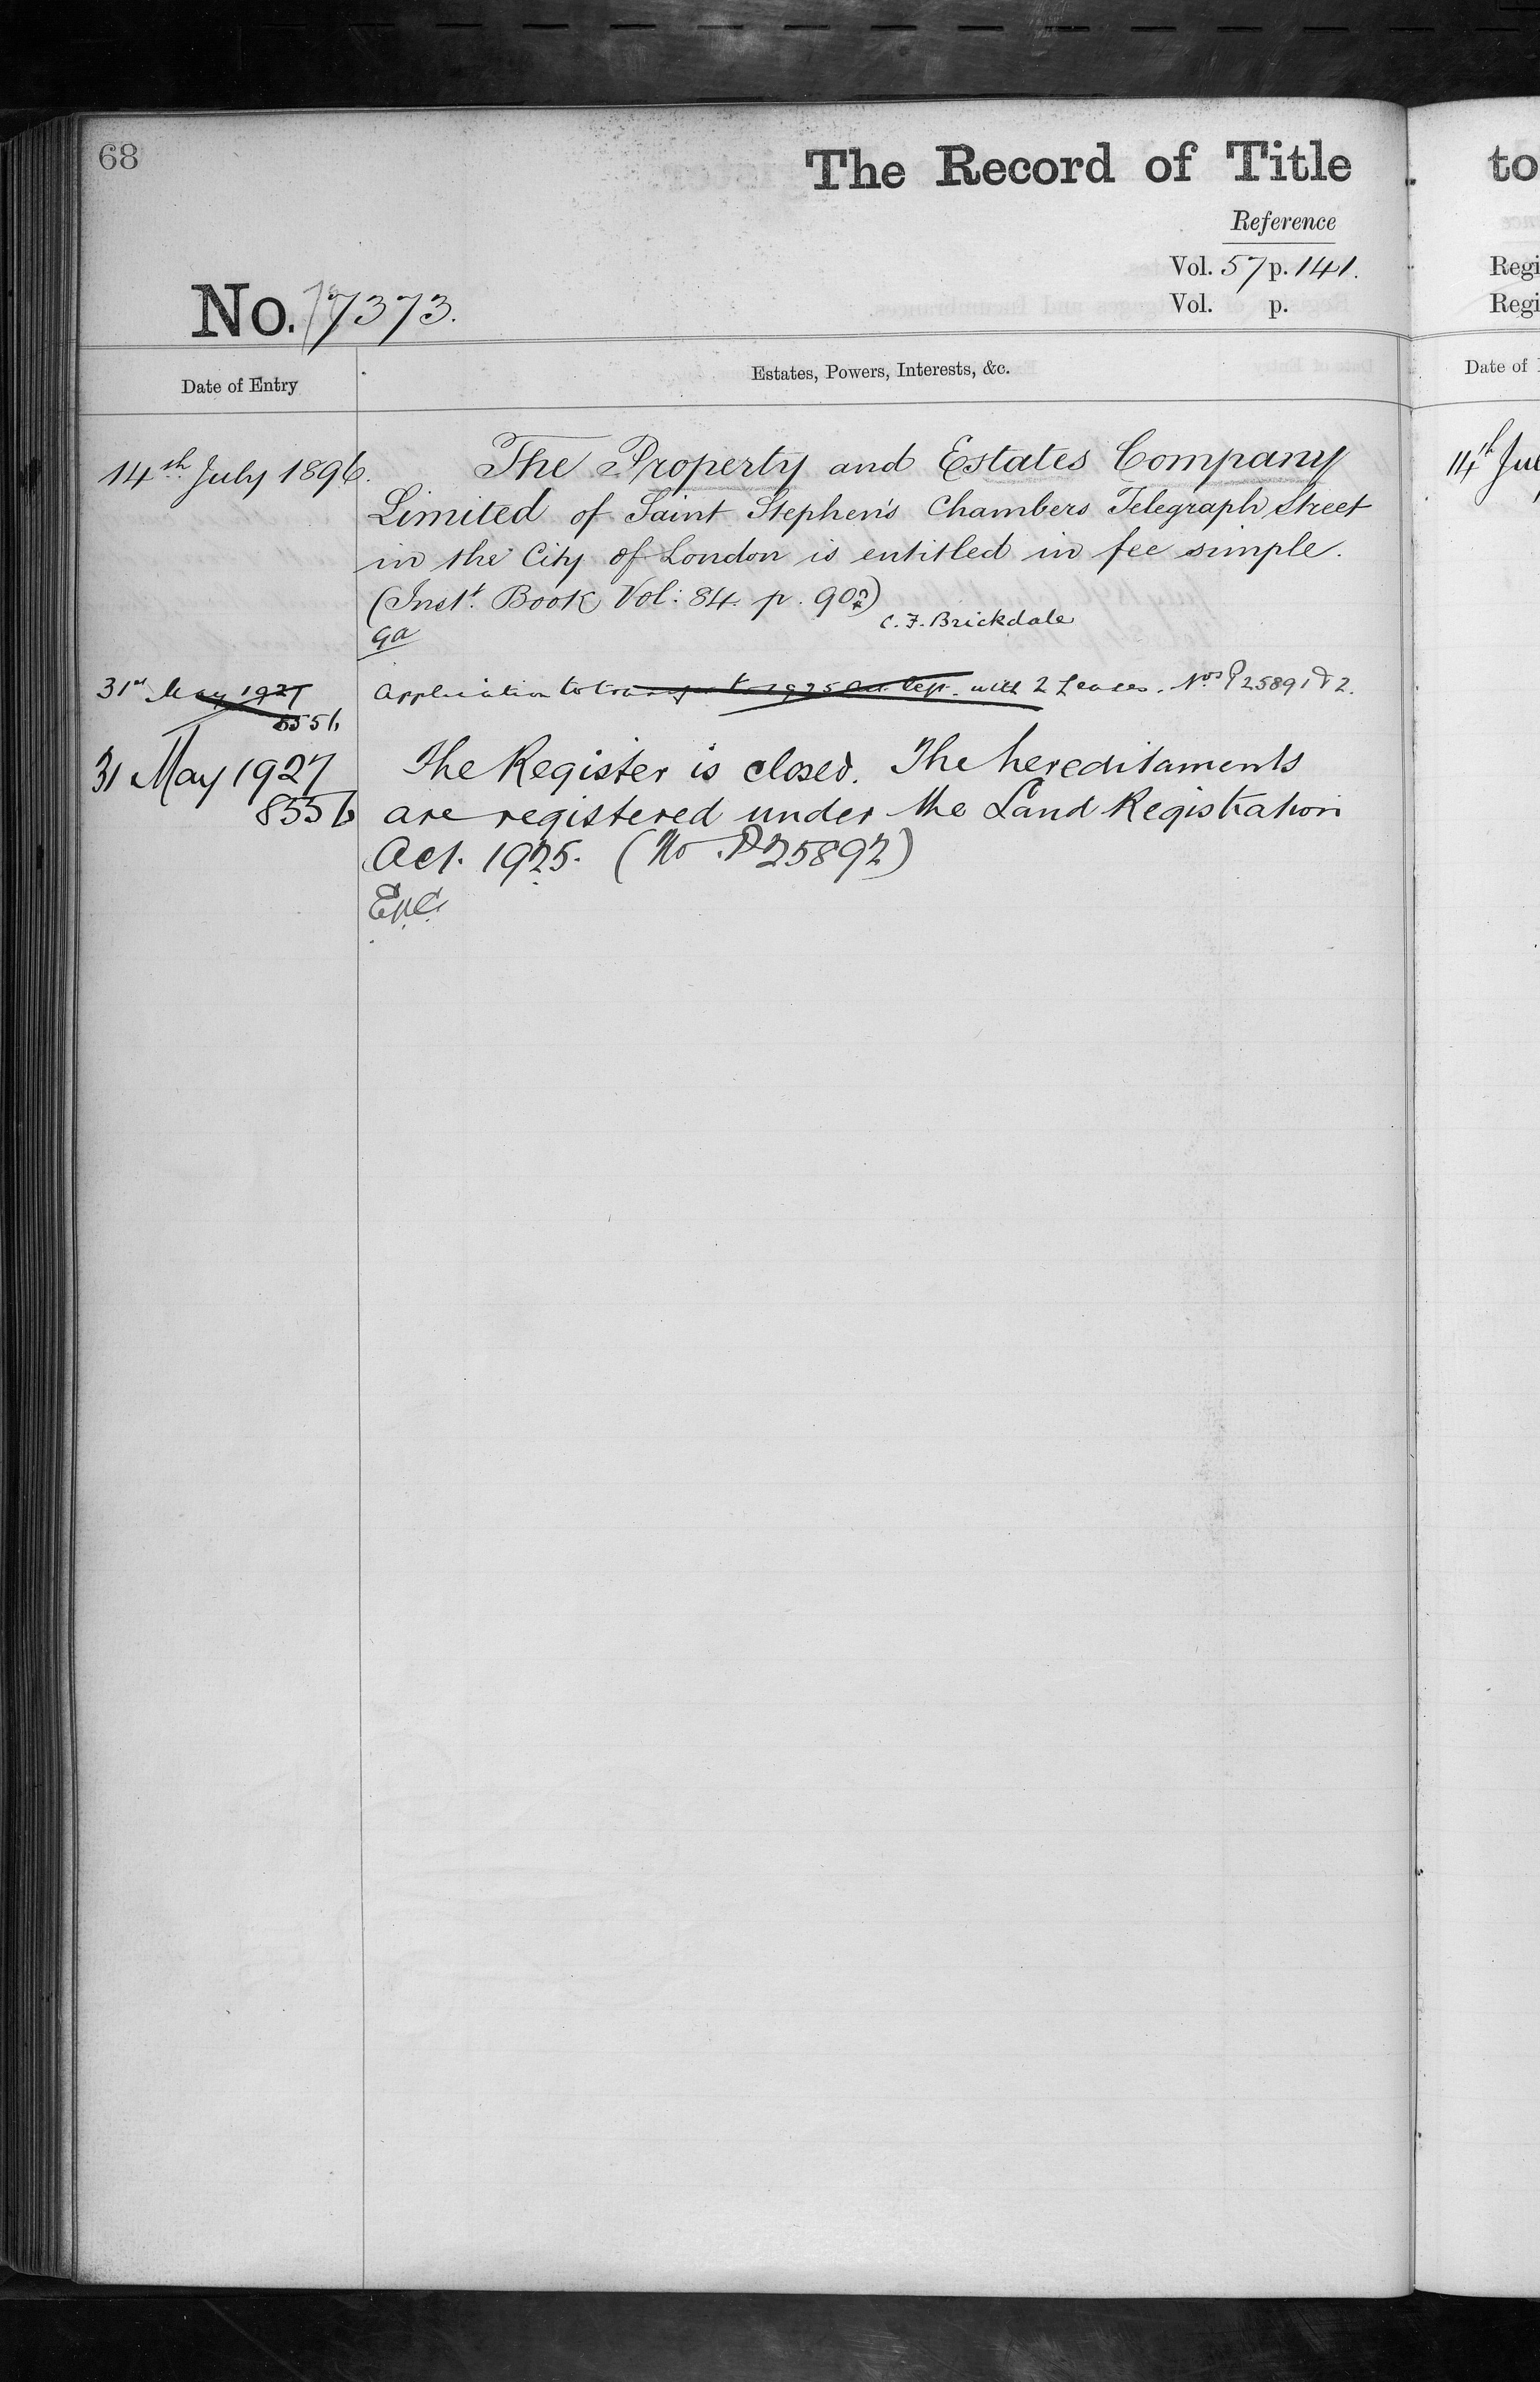 68
The Record of Title
Reference
Vol. 57 p. 141.
Vol. p.
No. 7373.
Date of Entry
Estates, Powers, Interests, &c.
14th July 1896.
The Property and Estates Company
Limited of Saint Stephen's Chambers Telegraph Street
in the City of London is entitled in fee simple.
(Inst. Book Vol: 84. p. 902)
C. F. Brickdale
31st May 1927
8556
Application to transfer to 1925 Act Dept. with 2 Leases. Nos P25891 & 2.
31 May 1927
8556
The Register is closed. The hereditaments
are registered under the Land Registration
Act. 1925. (No. P25892)
to
Regi
Regi
Date of
14th Jul